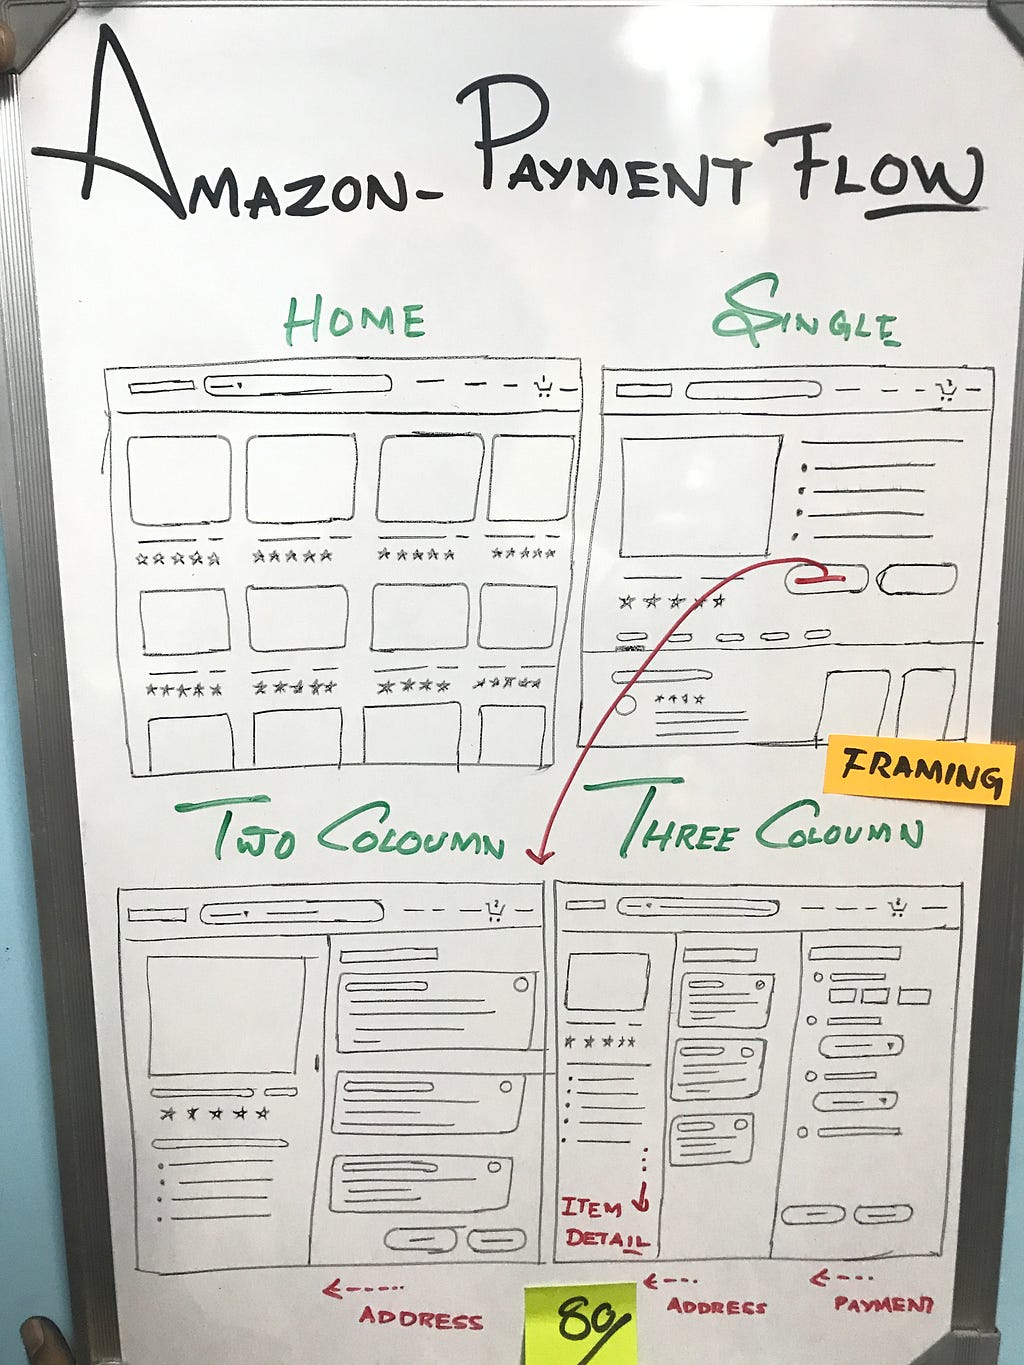 AMAZON- PAYMENT FLOW
HOME
SINGLE
FRAMING
TWO COLOUMN
THREE COLOUMN
ITEM
DETAIL
ADDRESS
ADDRESS
PAYMENT
80/